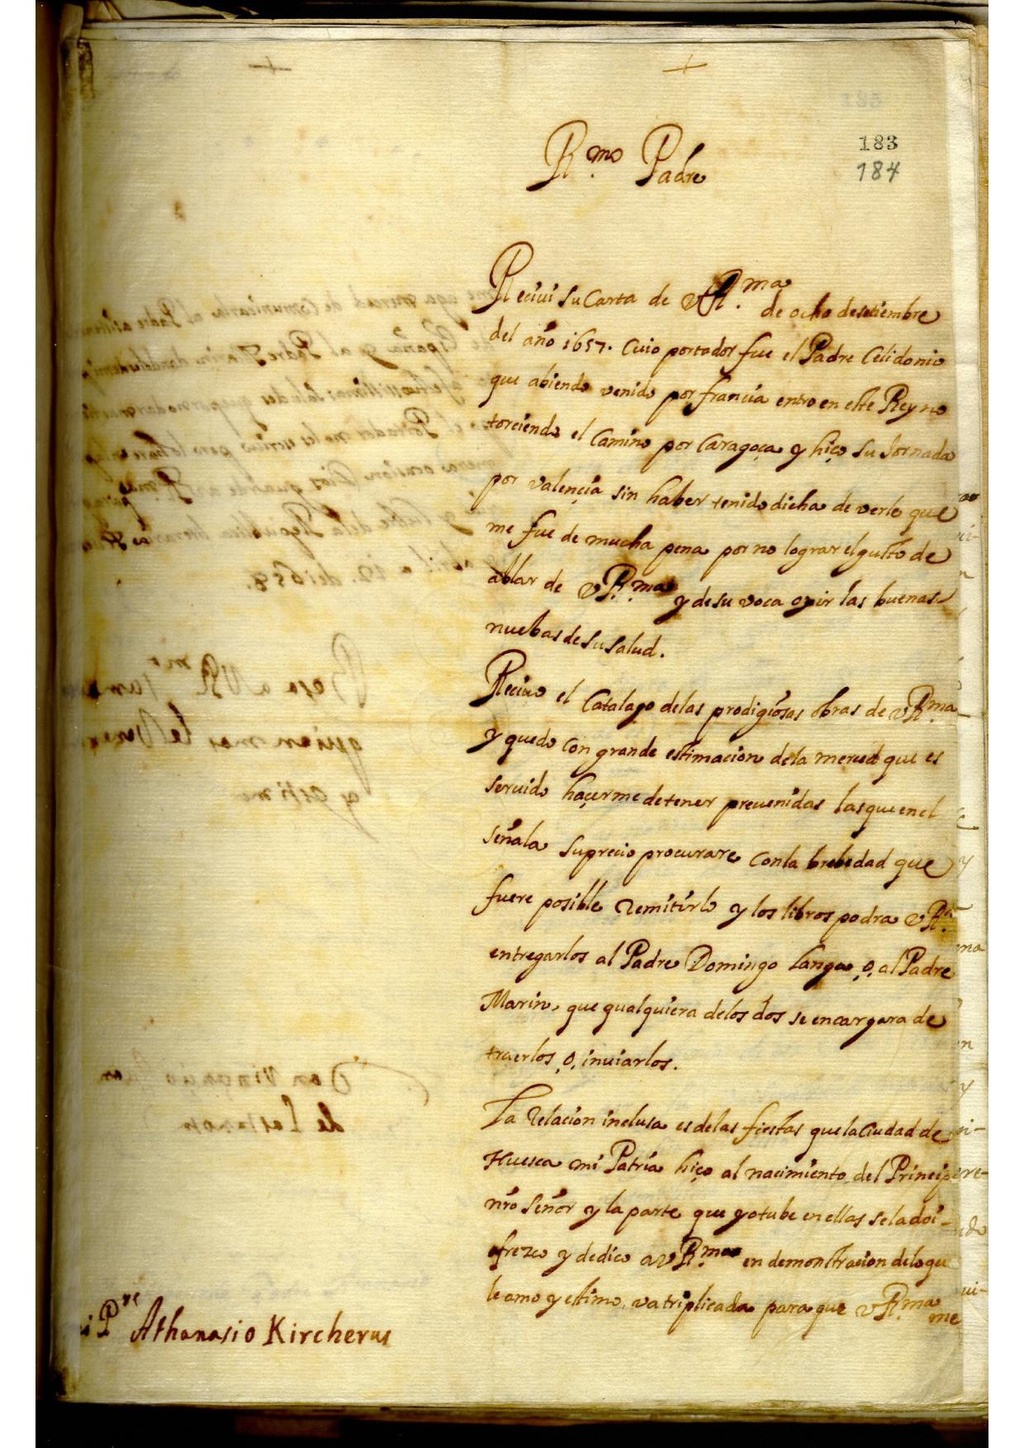 183
184
R.mo Padre
Recivi su Carta de VR.ma de ocho de setiembre
del año 1657. Cuio portador fue el Padre Celidonio
que abiendo venido por francia entro en este Reyno
torciendo el Camino por Caragoça y hiço su Jornada
por valençia sin haber tenido dicha de verle que
me fue de mucha pena por no lograr el gusto de
ablar de VR.ma y de su voca oyir las buenas
nuebas de su salud.
Recivo el Catalago de las prodigiosas obras de VR.ma
y quedo con grande estimacion de la merced que es
servido haçerme de tener prevenidas las que en el
señala su precio procurare con la brebedad que
fuere posible remitirlo y los libros podra VR.ma
entregarlos al Padre Domingo Langa, o, al Padre
Marin, que qualquiera de los dos se encargara de
traerlos, o, inviarlos.
La relacion inclusa es de las fiestas que la Ciudad de
Huesca mi Patria hiço al nacimiento del Principe
nro Señor y la parte que yo tube en ellas se la doi
ofrezco y dedico a VR.ma en demonstracion de lo que
le amo y estimo. va triplicada para que VR.ma me
Pre Athanasio Kircherus